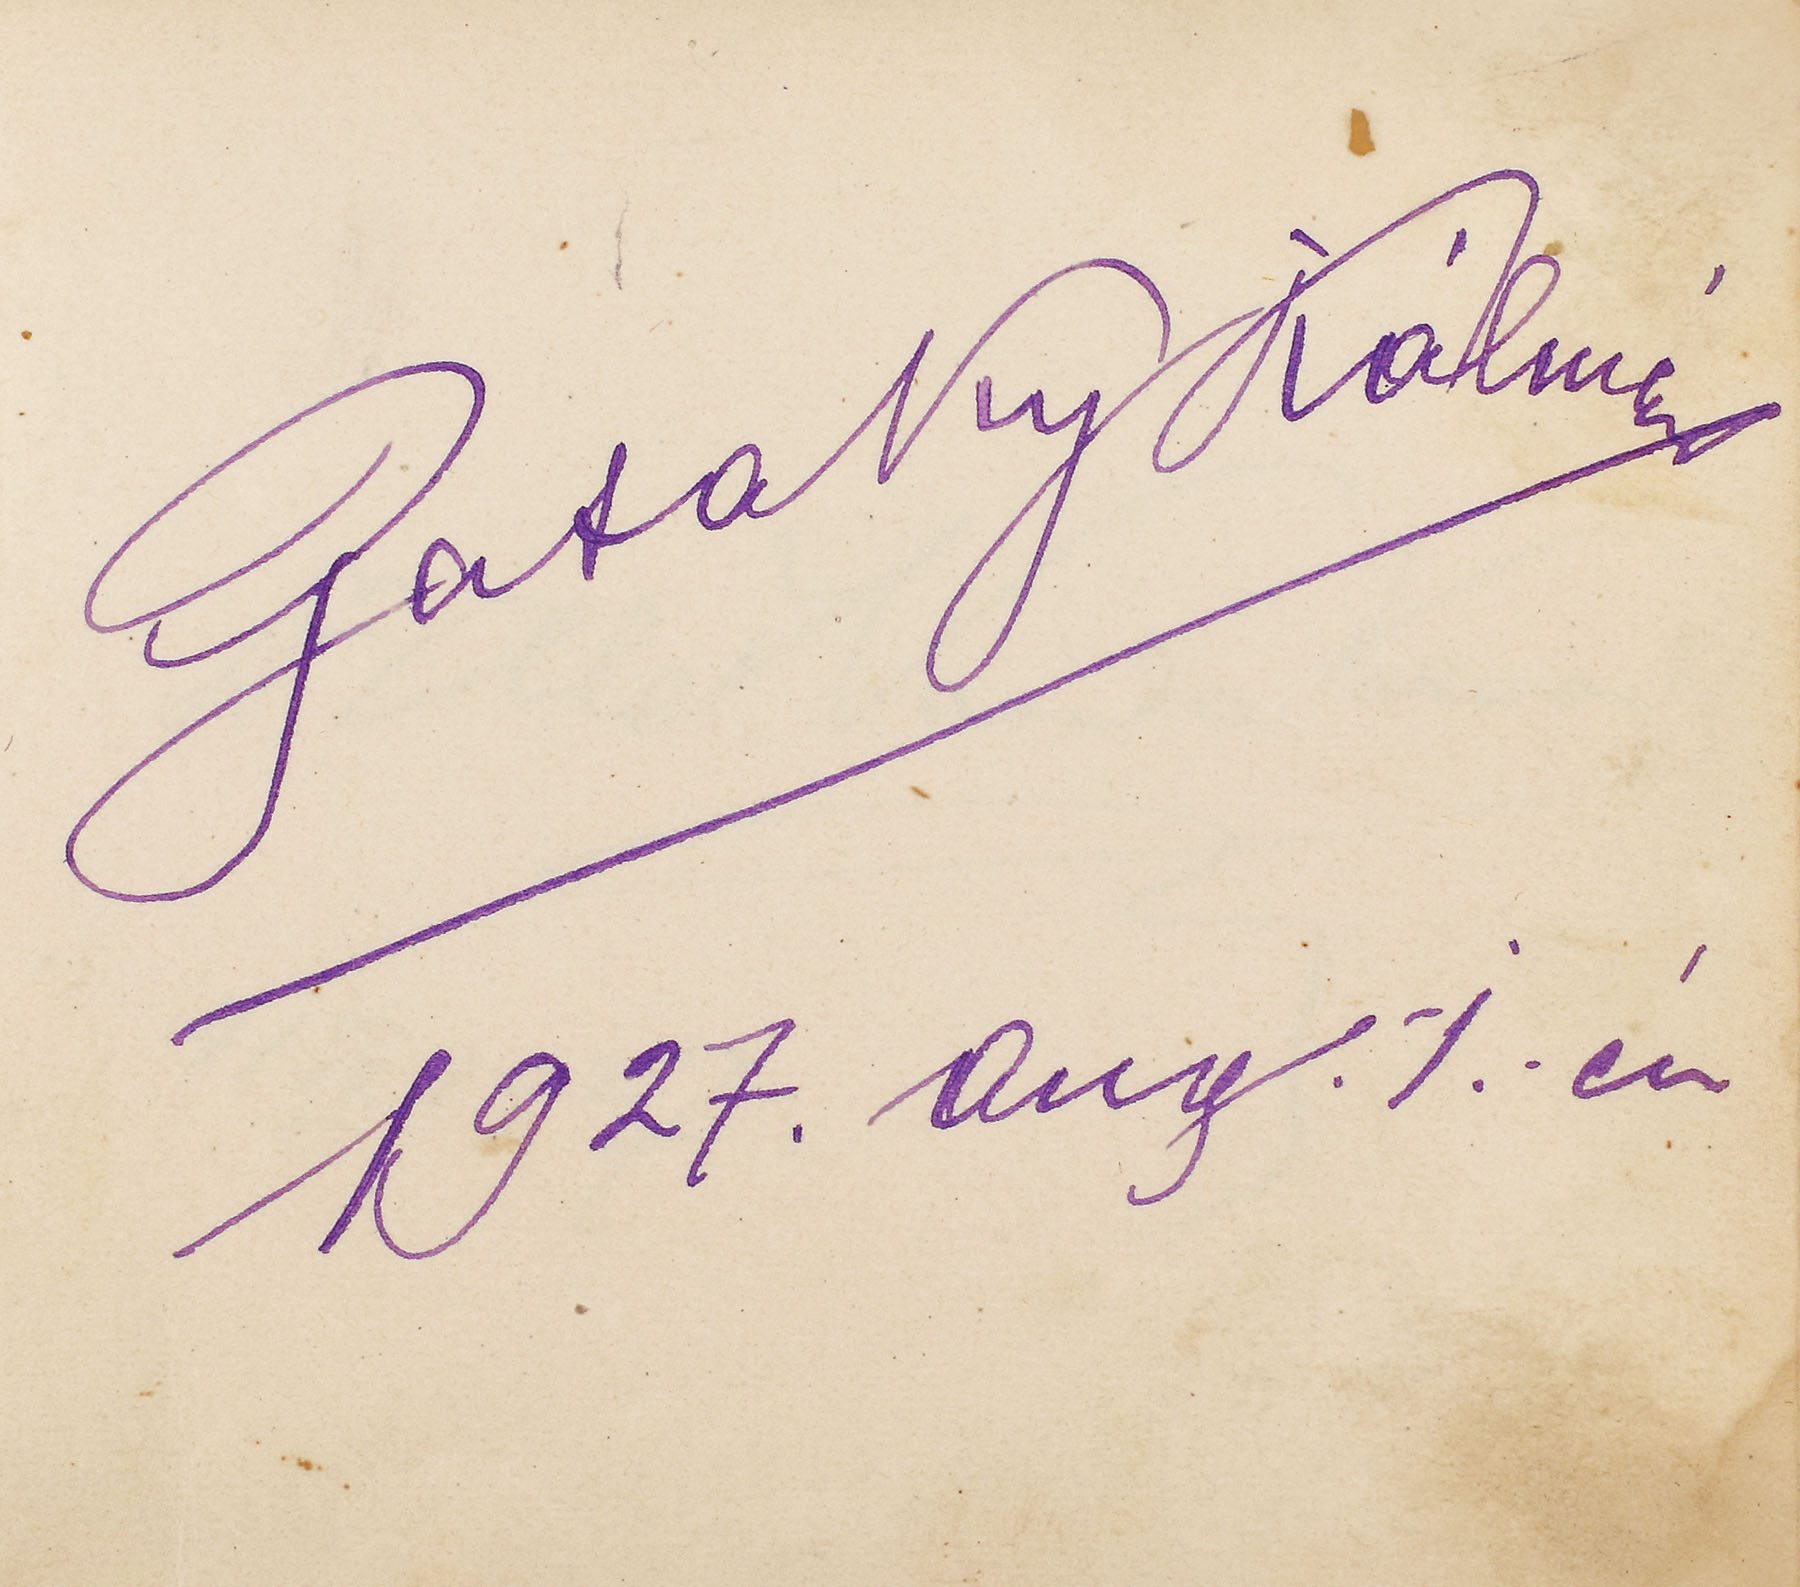 Gataky Kálmán
1927. aug. 1.-én